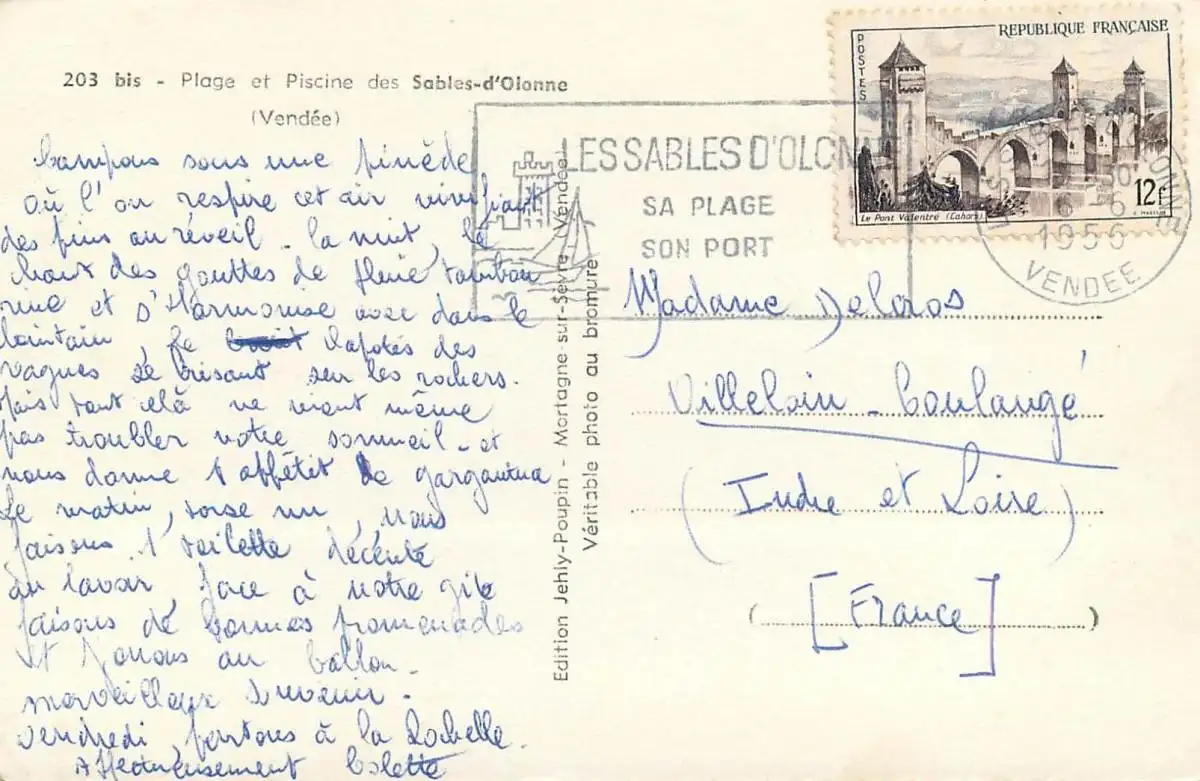 203 bis - Plage et Piscine des Sables-d'Olonne
(Vendée)
Campons sous une pinède
où l'on respire cet air vivifiant
des pins au réveil - la nuit, le
chant des gouttes de pluie tambou
rine et s'harmonise avec dans le
lointain, le clapotis des
vagues se brisant sur les rochers.
Mais tout celà ne vient même
pas troubler notre sommeil - et
nous donne l'appétit de gargantua
Le matin, torse nu, nous
faisons l'toilette décente
au lavoir, face à notre gite
faisons de bonnes promenades
et jouons au ballon.
merveilleux souvenir.
vendredi, partons à la Rochelle.
Affectueusement Colette
Edition Jehly-Poupin - Mortagne-sur-Sèvre (Vendée)
Véritable photo au bromure
LES SABLES D'OLONNE
SA PLAGE
SON PORT
REPUBLIQUE FRANÇAISE
POSTES
Le Pont Valentré (Cahors)
12f
1956
VENDEE
Madame Delcros
Villeloin - Coulangé
(Indre et Loire)
[France]